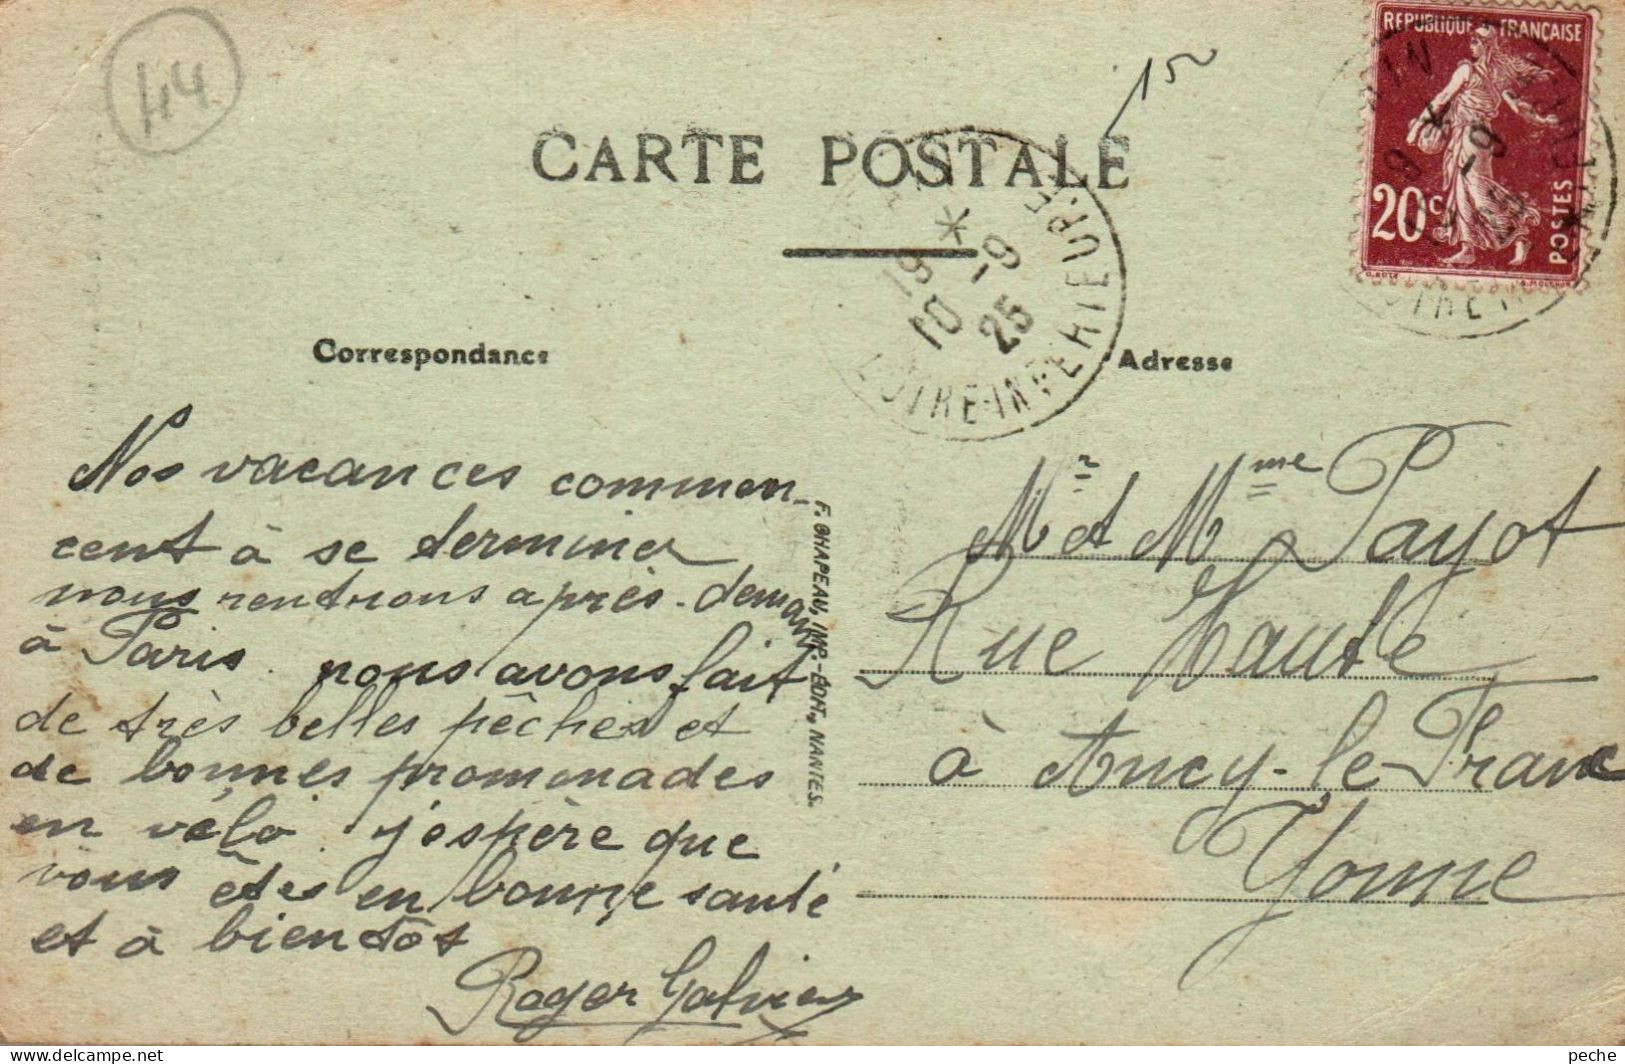 44
150
CARTE POSTALE
REPUBLIQUE FRANÇAISE
20c
POSTES
19 * -9
10 25
LOIRE-INFERIEURE
Correspondance
Adresse
Nos vacances commen-
cent à se terminer
nous rentrons après-demain
à Paris. nous avons fait
de très belles pêches et
de bonnes promenades
en vélo. j'espère que
vous êtes en bonne santé
et à bientôt
Roger Galvier
F. CHAPEAU, IMP.-ÉDIT., NANTES.
Mr et Mme Payot
Rue Haute
à Ancy-le-Franc
Yonne
peche
www.delcampe.net